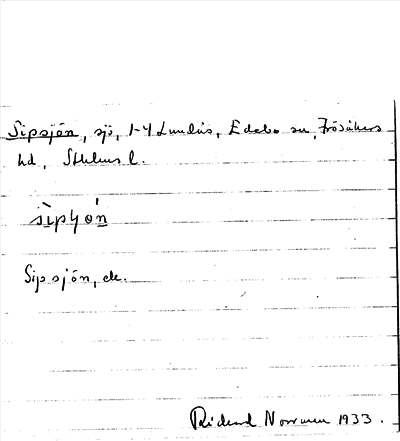 Sipsjön, sjö, 1-4 Lundås, Edebo sn, Frösåkers
hd, Sthlms l.
sìpʃón
Sipsjön, ek.
Rickard Norrman 1933.